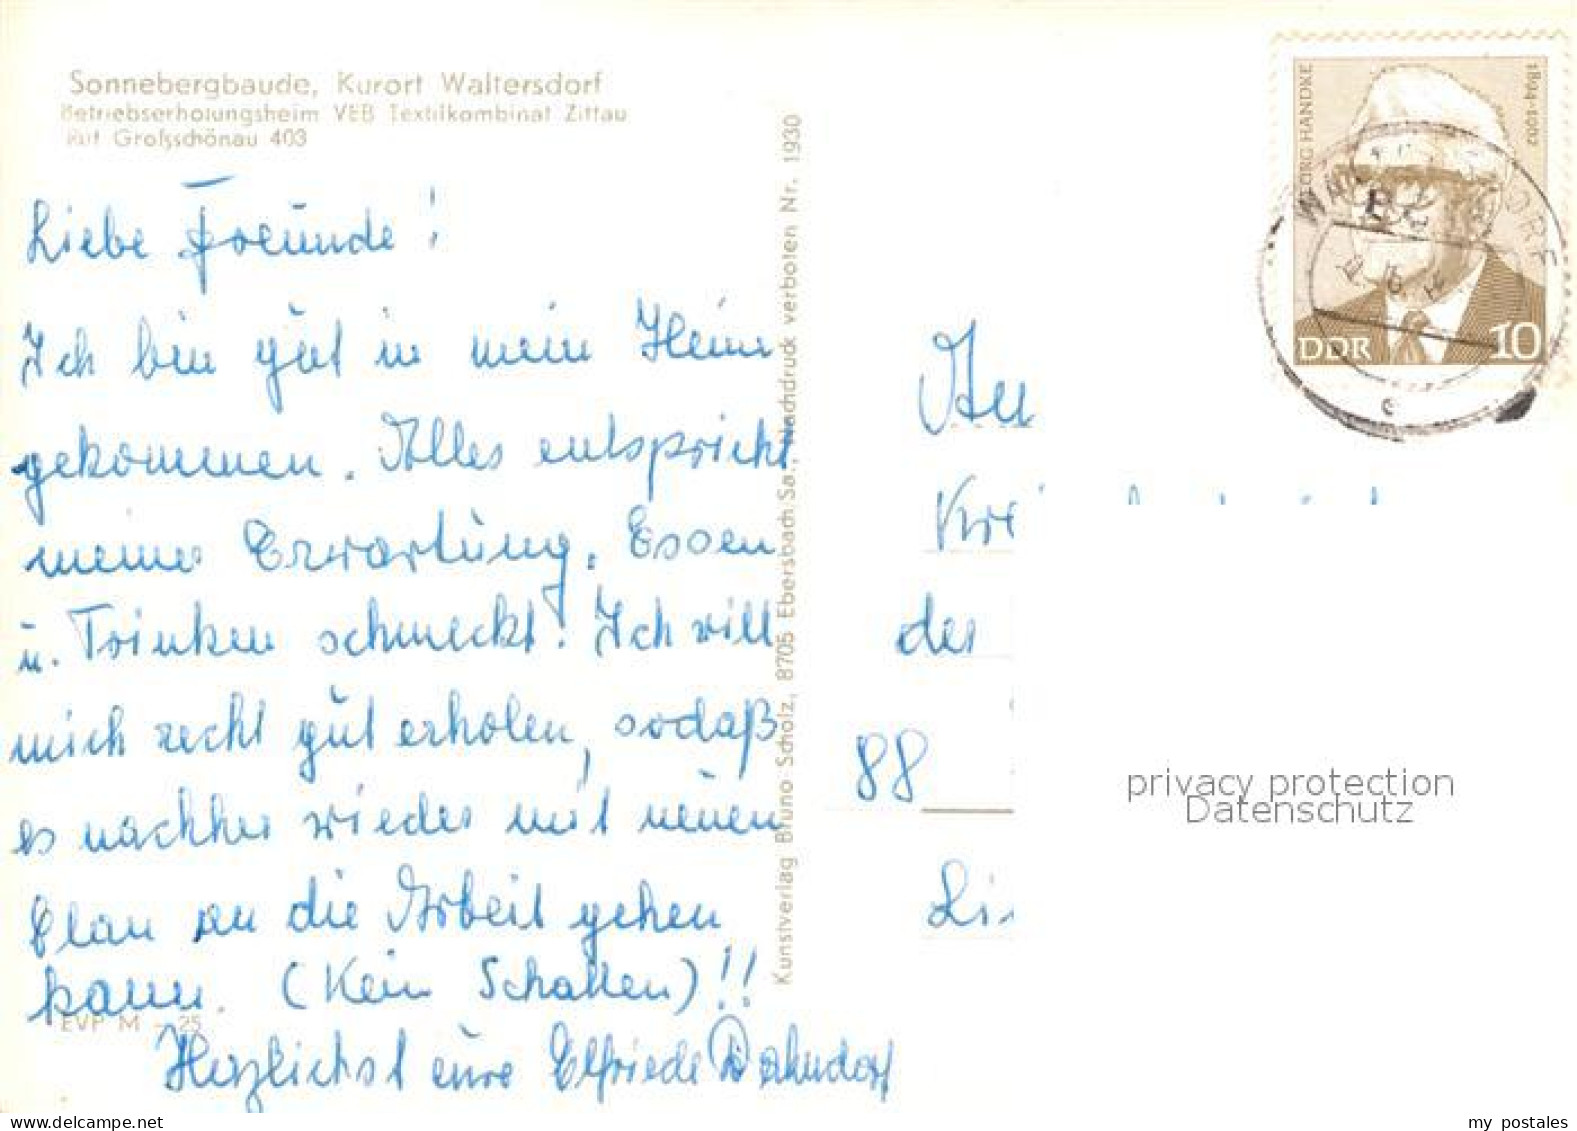 Sonnebergbaude, Kurort Waltersdorf
Betriebserholungsheim VEB Textilkombinat Zittau
Ruf Großschönau 403
Liebe Freunde!
Ich bin gut in mein Heim
gekommen. Alles entspricht
meiner Erwartung. Essen
u. Trinken schmeckt. Ich will
mich recht gut erholen, sodaß
es nachher wieder mit neuen
Elan an die Arbeit gehen
kann. (Kein Schatten)!!
Herzlichst eure Elfriede Dahndorf
EVP M - 25
Kunstverlag Bruno Scholz, 8705 Ebersbach/Sa., Nachdruck verboten Nr. 1930
GEORG HANDKE
1894-1962
DDR 10
An
der
88
privacy protection
Datenschutz
my postales